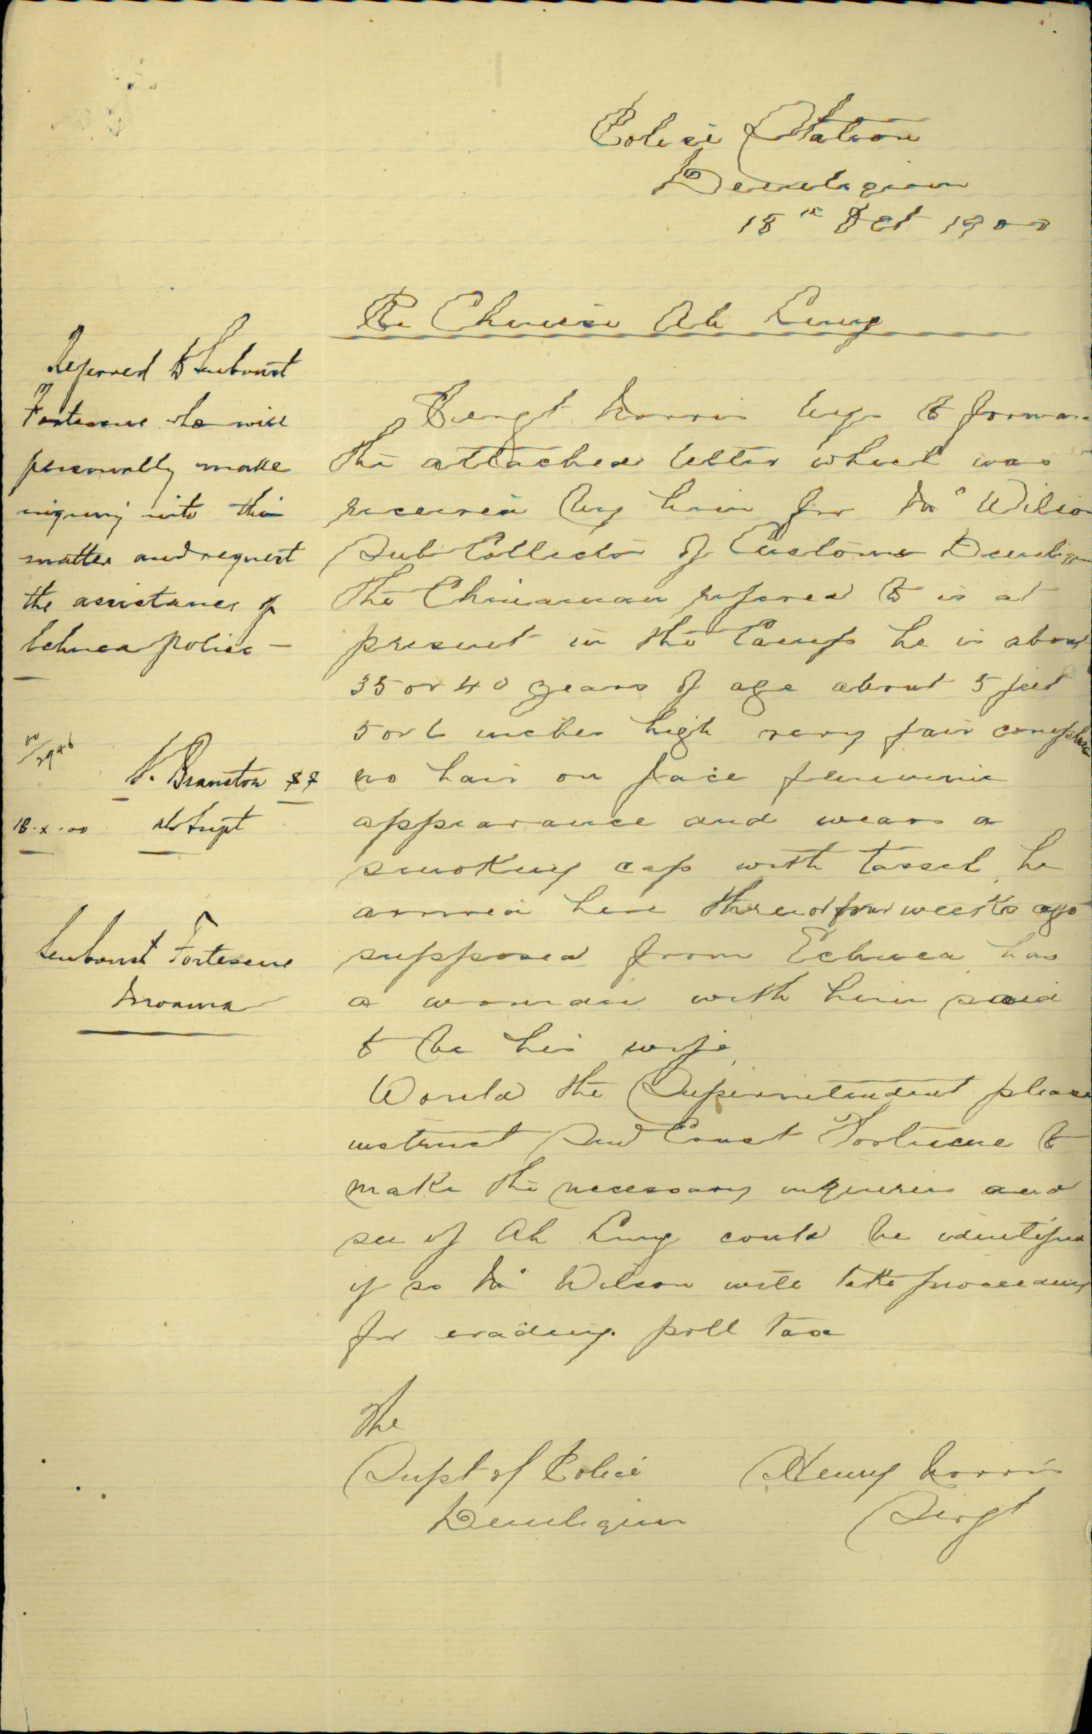 Police Station
Deniliquin
18th Oct 1900
Re Chinese Ah Lung
Sergt Norris begs to forward
the attached letter which was
received by him for Mr Wilson
Sub Collector of Customs Deniliquin
the Chinaman refered to is at
present in the Camp he is about
35 or 40 years of age about 5 feet
5 or 6 inches high very fair complexion
no hair on face feminine
appearance and wears a
smoking cap with tassel, he
arrived here three or four weeks ago
supposed from Echuca has
a woman with him said
to be his wife,
Would the Superintendent please
instruct Sen Const Fortescue to
make the necessary inquiries and
see if Ah Lung could be identified
if so Mr Wilson will take proceedings
for evading poll tax
The
Supt of Police
Deniliquin
Henry Norris
Sergt
Referred to Senconst
Fortescue who will
personally make
inquiry into this
matter and request
the assistance of
Echuca police —
Branston
18.x.00 Supt
Senconst Fortescue
Moama